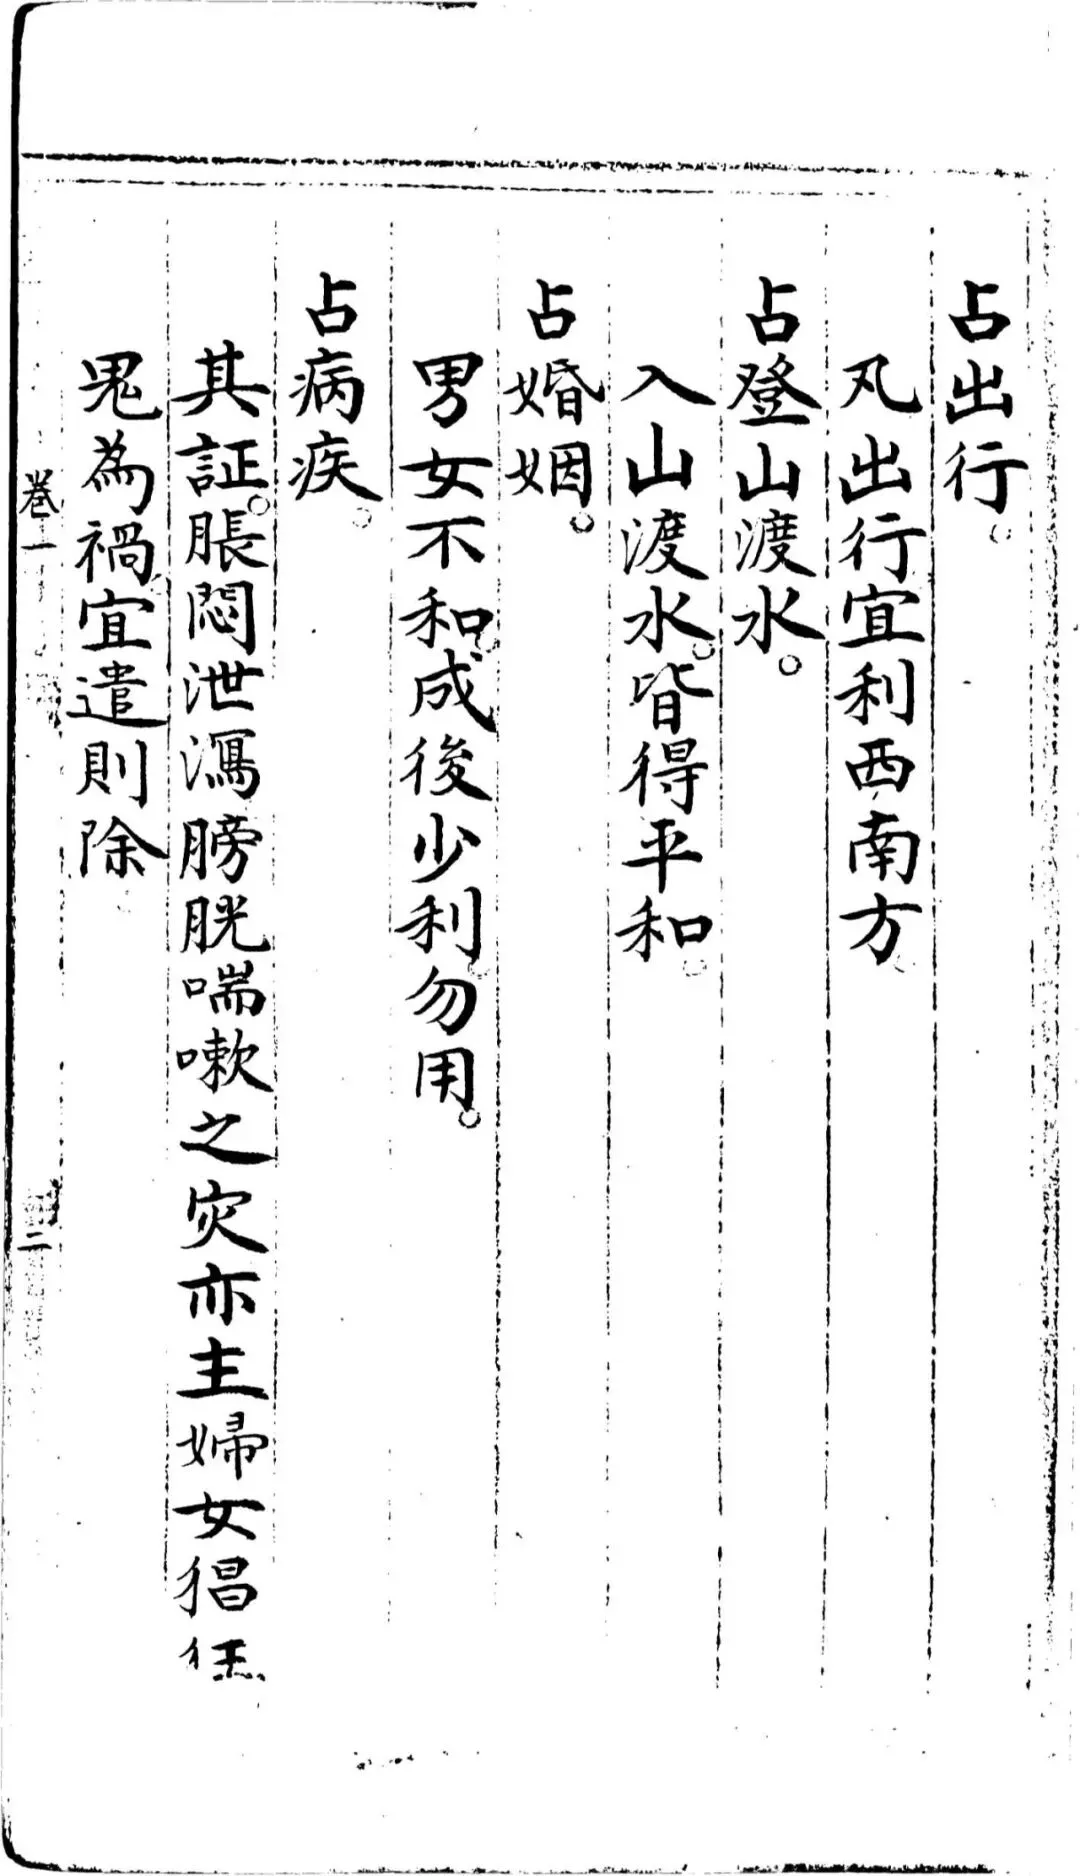 占出行。
凡出行宜利西南方。
占登山渡水。
入山渡水。皆得平和。
占婚姻。
男女不和。成後少利。勿用。
占病疾。
其証。脹悶泄瀉膀胱喘嗽之灾亦主婦女猖
鬼為禍。宜遣則除。
卷一
二